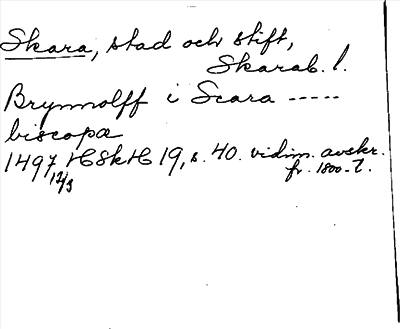 Skara, stad och stift,
Skarab. l.
Brynnolff i Scara -----
biscopæ
1497 12/3 HSkH 19, s. 40. vidim. avskr.
fr. 1800-t.